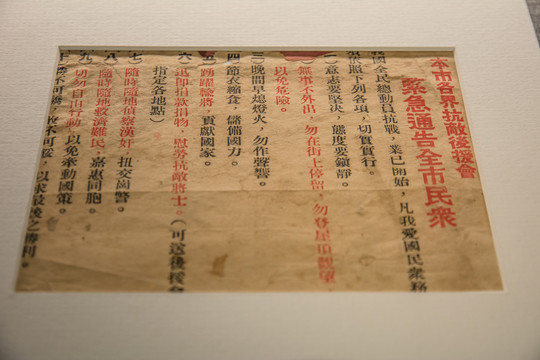 本市各界抗敵後援會
緊急通告全市民衆
我國全民總動員抗戰，業已開始，凡我愛國民衆務
須依照下列各項，切實實行。
一）意志要堅決，態度要鎮靜。
無事不外出，勿在街上停留，勿登屋頂觀望，
以免危險。
三）晚間早熄燈火，勿作聲響。
四）節衣縮食，儲備國力。
五）踴躍輸將，貢獻國家。
六）迅即捐款捐物，慰勞抗敵將士。（可送後援會
指定各地點）
七）隨時隨地偵察漢奸，扭交崗警。
八）隨時隨地救濟難民，嘉惠同胞。
九）切勿自由行動，以免牽動國策。
以求最後之勝利。